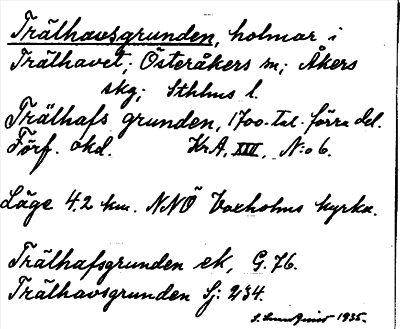 Trälhavsgrunden, holmar i
Trälhavet; Österåkers sn; Åkers
skg; Sthlms l.
Trälhafs grunden, 1700-tal. förra del.
Förf. okd. KrA, XXII, N:o 6.
Läge 4.2 km. NNÖ Vaxholms kyrka.
Trälhafsgrunden ek, G. 76.
Trälhavsgrunden Sj: 234.
1935.